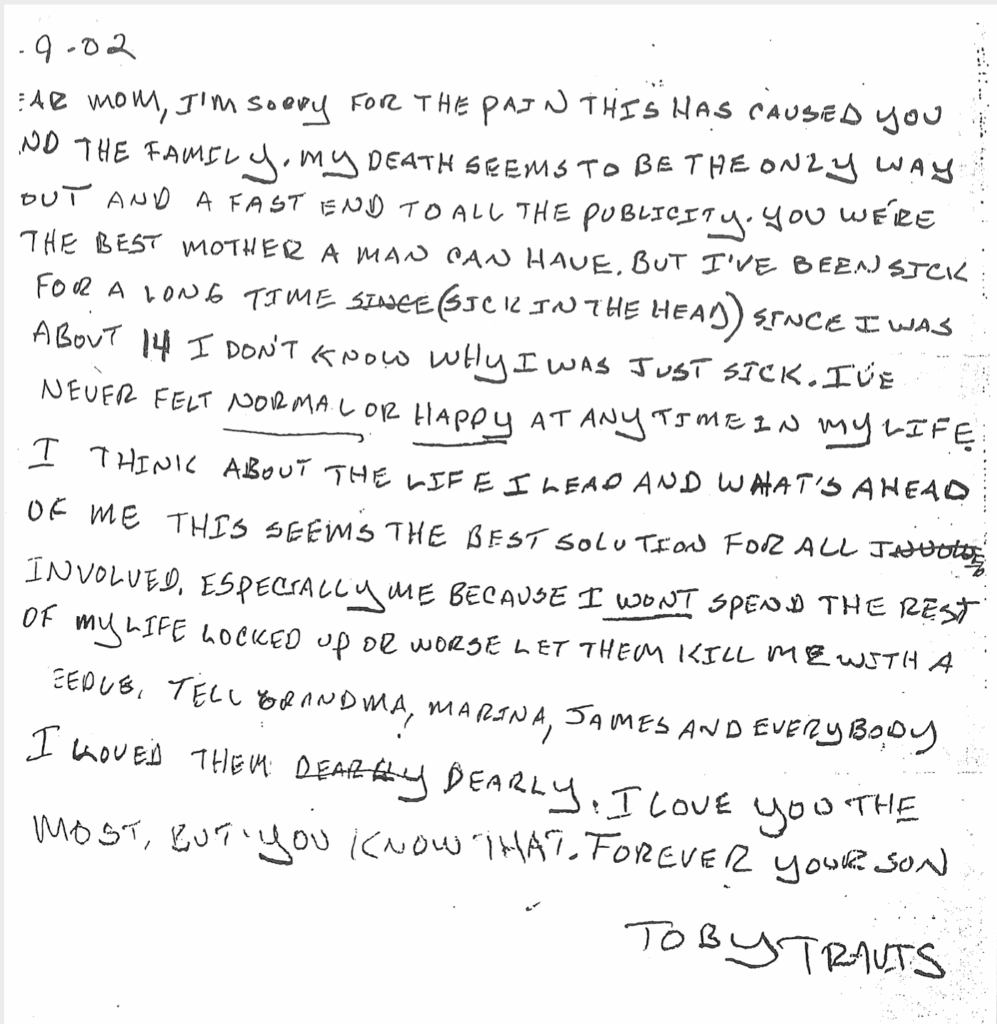 .9-02
EAR MOM, I'M SORRY FOR THE PAIN THIS HAS CAUSED YOU
ND THE FAMILY. MY DEATH SEEMS TO BE THE ONLY WAY
OUT AND A FAST END TO ALL THE PUBLICITY. YOU WERE
THE BEST MOTHER A MAN CAN HAVE. BUT I'VE BEEN SICK
FOR A LONG TIME SINCE (SICK IN THE HEAD) SINCE I WAS
ABOUT 14 I DON'T KNOW WHY I WAS JUST SICK. I'VE
NEVER FELT NORMAL OR HAPPY AT ANY TIME IN MY LIFE.
I THINK ABOUT THE LIFE I LEAD AND WHAT'S AHEAD
OF ME THIS SEEMS THE BEST SOLUTION FOR ALL
INVOLVED. ESPECIALLY ME BECAUSE I WONT SPEND THE REST
OF MY LIFE LOCKED UP OR WORSE LET THEM KILL ME WITH A
TELL GRANDMA, MARINA, JAMES AND EVERYBODY
I LOVED THEM DEARLY DEARLY. I LOVE YOU THE
MOST, BUT YOU KNOW THAT. FOREVER YOUR SON
TOBY TRAVIS